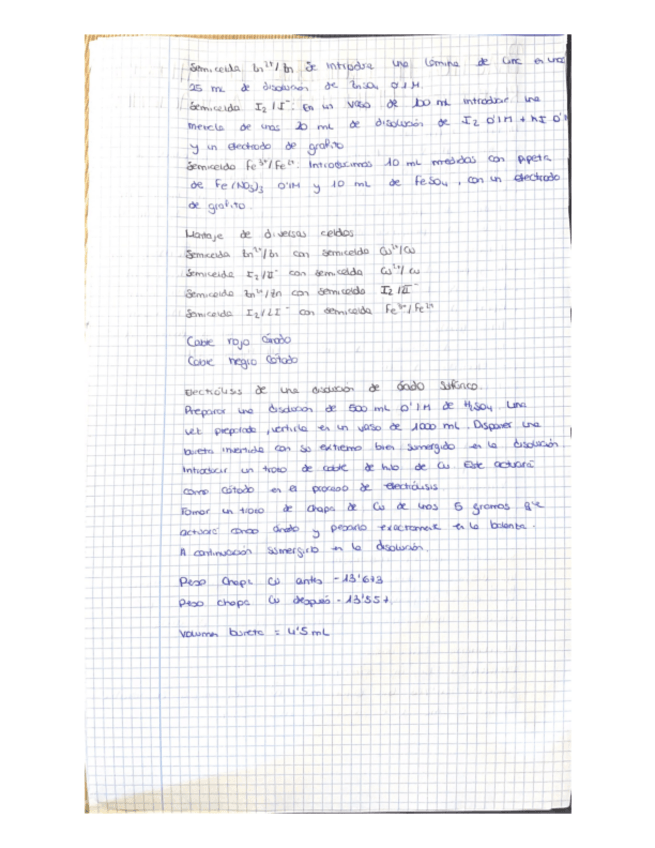 Semicelda Zn²⁺/Zn Se introduce una lámina de cinc en unos
25 mL de disolución de ZnSO₄ 0'1M.
Semicelda I₂/I⁻ En un vaso de 100 mL introducir una
mezcla de unos 20 mL de disolución de I₂ 0'1M + KI 0'1
y un electrodo de grafito
Semicelda Fe³⁺/Fe²⁺: Introducimos 10 mL medidos con pipeta
de Fe(NO₃)₃ 0'1M y 10 mL de FeSO₄, con un electrodo
de grafito.
Montaje de diversas celdas
Semicelda Zn²⁺/Zn con semicelda Cu²⁺/Cu
Semicelda I₂/I⁻ con semicelda Cu²⁺/Cu
Semicelda Zn²⁺/Zn con semicelda I₂/I⁻
Semicelda I₂/I⁻ con semicelda Fe³⁺/Fe²⁺
Cable rojo ánodo
Cable negro cátodo
Electrólisis de una disolución de ácido sulfúrico.
Preparar una disolución de 500 mL 0'1M de H₂SO₄. Una
vez preparada, vertirla en un vaso de 1000 mL. Disponer una
bureta invertida con su extremo bien sumergido en la disolución.
Introducir un trozo de cable de hilo de Cu. Este actuará
como cátodo en el proceso de electrólisis
Tomar un trozo de chapa de Cu de unos 5 gramos que
actuará como ánodo y pesarlo exactamente en la balanza.
A continuación sumergirlo en la disolución.
Peso chapa Cu antes - 13'673
Peso chapa Cu después - 13'557
Volumen bureta = 4'5 mL